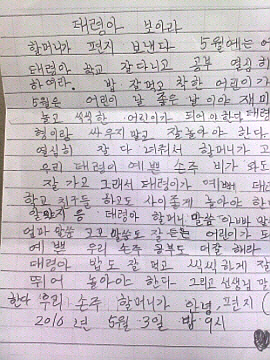 대령아 보아라
할머니가 편지 보낸다 5월에는
대령아 학교 잘 다니고 공부 열심히
하여라. 밥 잘 먹고 착한 어린이가
5월은 어린이 날 좋은 날 이야 재미
놀고 씩씩한 어린이가 되어야 한다 대령
형이랑 싸우지 말고 잘 놀아야 한다.
열심히 잘 다녀와서 할머니가 고
우리 대령이 예쁜 손주 비가 와도
잘 가고 그래서 대령이가 예뻐 대
학교 친구들 하고도 사이좋게 놀아야 하
할아버지 대령아 할머니 말씀 아빠 말
엄마 말씀 꼬꼬 말씀도 잘 듣는 어린이가 되
예쁜 우리 손주 공부도 더 잘 해라
대령아 밥도 잘 먹고 씩씩하게 잘
뛰어 놀아야 한다 그리고 선생님 말
한다 우리 손주 할머니가 안녕, 편지
2010년 5월 3일 밤 9시